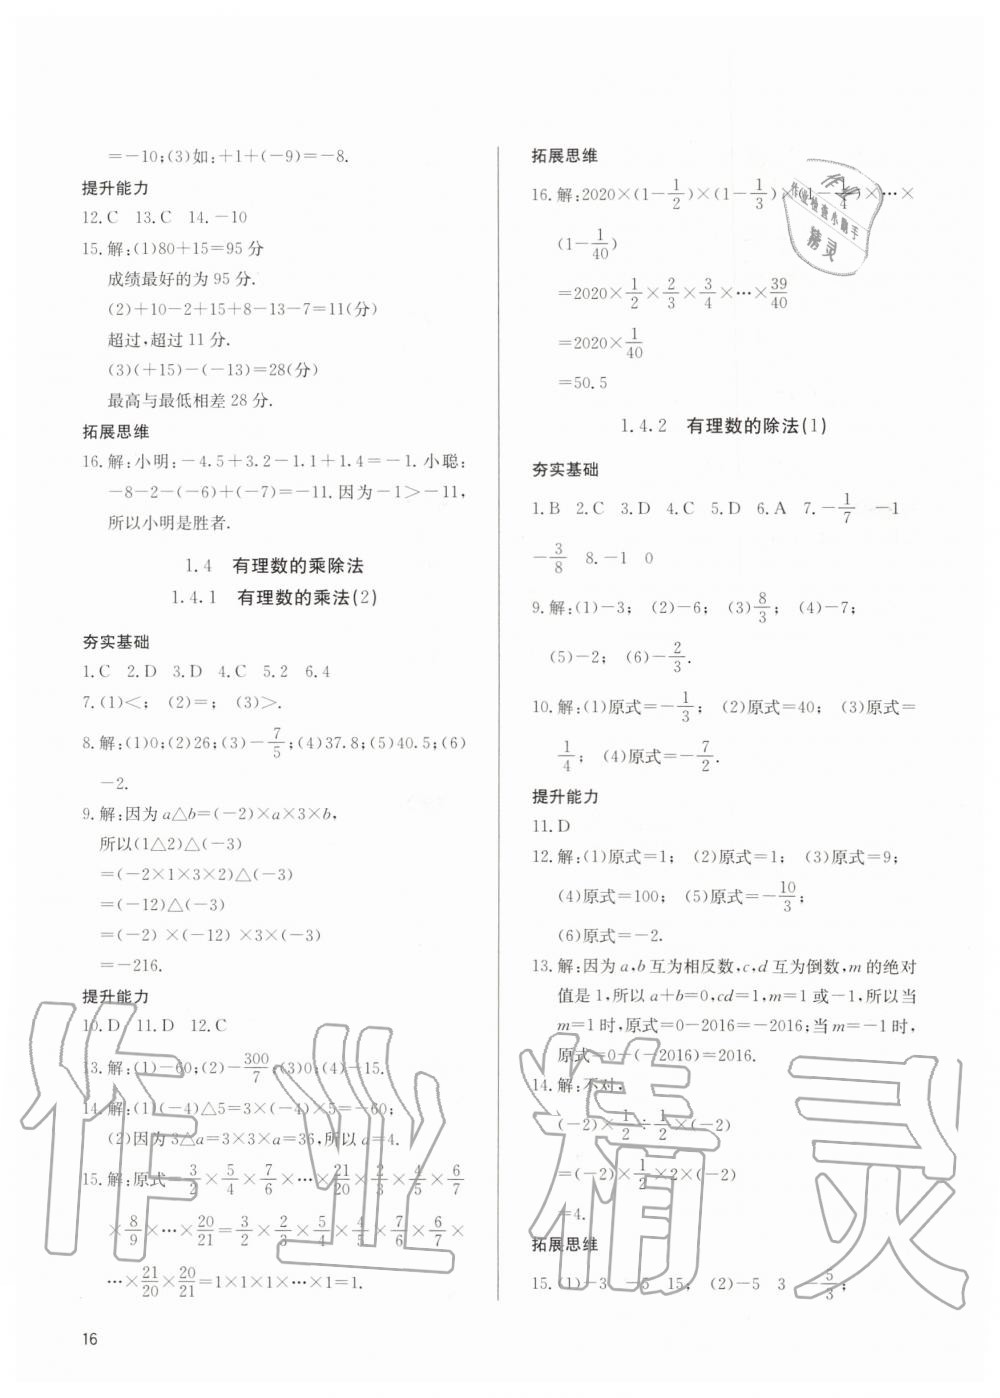 =-10;(3)如:+1+(-9)=-8.
提升能力
12.C 13.C 14.-10
15.解:(1)80+15=95分
成绩最好的为95分.
(2)+10-2+15+8-13-7=11(分)
超过,超过11分.
(3)(+15)-(-13)=28(分)
最高与最低相差28分.
拓展思维
16.解:小明:-4.5+3.2-1.1+1.4=-1.小聪:
-8-2-(-6)+(-7)=-11.因为-1>-11,
所以小明是胜者.
1.4 有理数的乘除法
1.4.1 有理数的乘法(2)
夯实基础
1.C 2.D 3.D 4.C 5.2 6.4
7.(1)<; (2)=; (3)>.
8.解:(1)0;(2)26;(3)-7/5;(4)37.8;(5)40.5;(6)
-2.
9.解:因为a△b=(-2)×a×3×b,
所以(1△2)△(-3)
=(-2×1×3×2)△(-3)
=(-12)△(-3)
=(-2)×(-12)×3×(-3)
=-216.
提升能力
10.D 11.D 12.C
13.解:(1)-60;(2)-300/7;(3)0;(4)-15.
14.解:(1)(-4)△5=3×(-4)×5=-60;
(2)因为3△a=3×3×a=36,所以a=4.
15.解:原式=3/2×5/4×7/6×…×21/20×2/3×4/5×6/7
×8/9×…×20/21=3/2×2/3×5/4×4/5×7/6×6/7×
…×21/20×20/21=1×1×1×…×1=1.
16
拓展思维
16.解:2020×(1-1/2)×(1-1/3)×(1-1/4)×…×
(1-1/40)
=2020×1/2×2/3×3/4×…×39/40
=2020×1/40
=50.5
1.4.2 有理数的除法(1)
夯实基础
1.B 2.C 3.D 4.C 5.D 6.A 7.-1/7 -1
-3/8 8.-1 0
9.解:(1)-3; (2)-6; (3)8/3; (4)-7;
(5)-2; (6)-2/3.
10.解:(1)原式=-1/3; (2)原式=40; (3)原式=
1/4; (4)原式=-7/2.
提升能力
11.D
12.解:(1)原式=1; (2)原式=1; (3)原式=9;
(4)原式=100; (5)原式=-10/3;
(6)原式=-2.
13.解:因为a,b互为相反数,c,d互为倒数,m的绝对
值是1,所以a+b=0,cd=1,m=1或-1,所以当
m=1时,原式=0-2016=-2016;当m=-1时,
原式=0-(-2016)=2016.
14.解:不对.
(-2)×1/2÷1/2×(-2)
=(-2)×1/2×2×(-2)
=4.
拓展思维
15.(1)-3 -5 15; (2)-5 3 -5/3;
作业
作业检查小助手
精灵
作业精灵